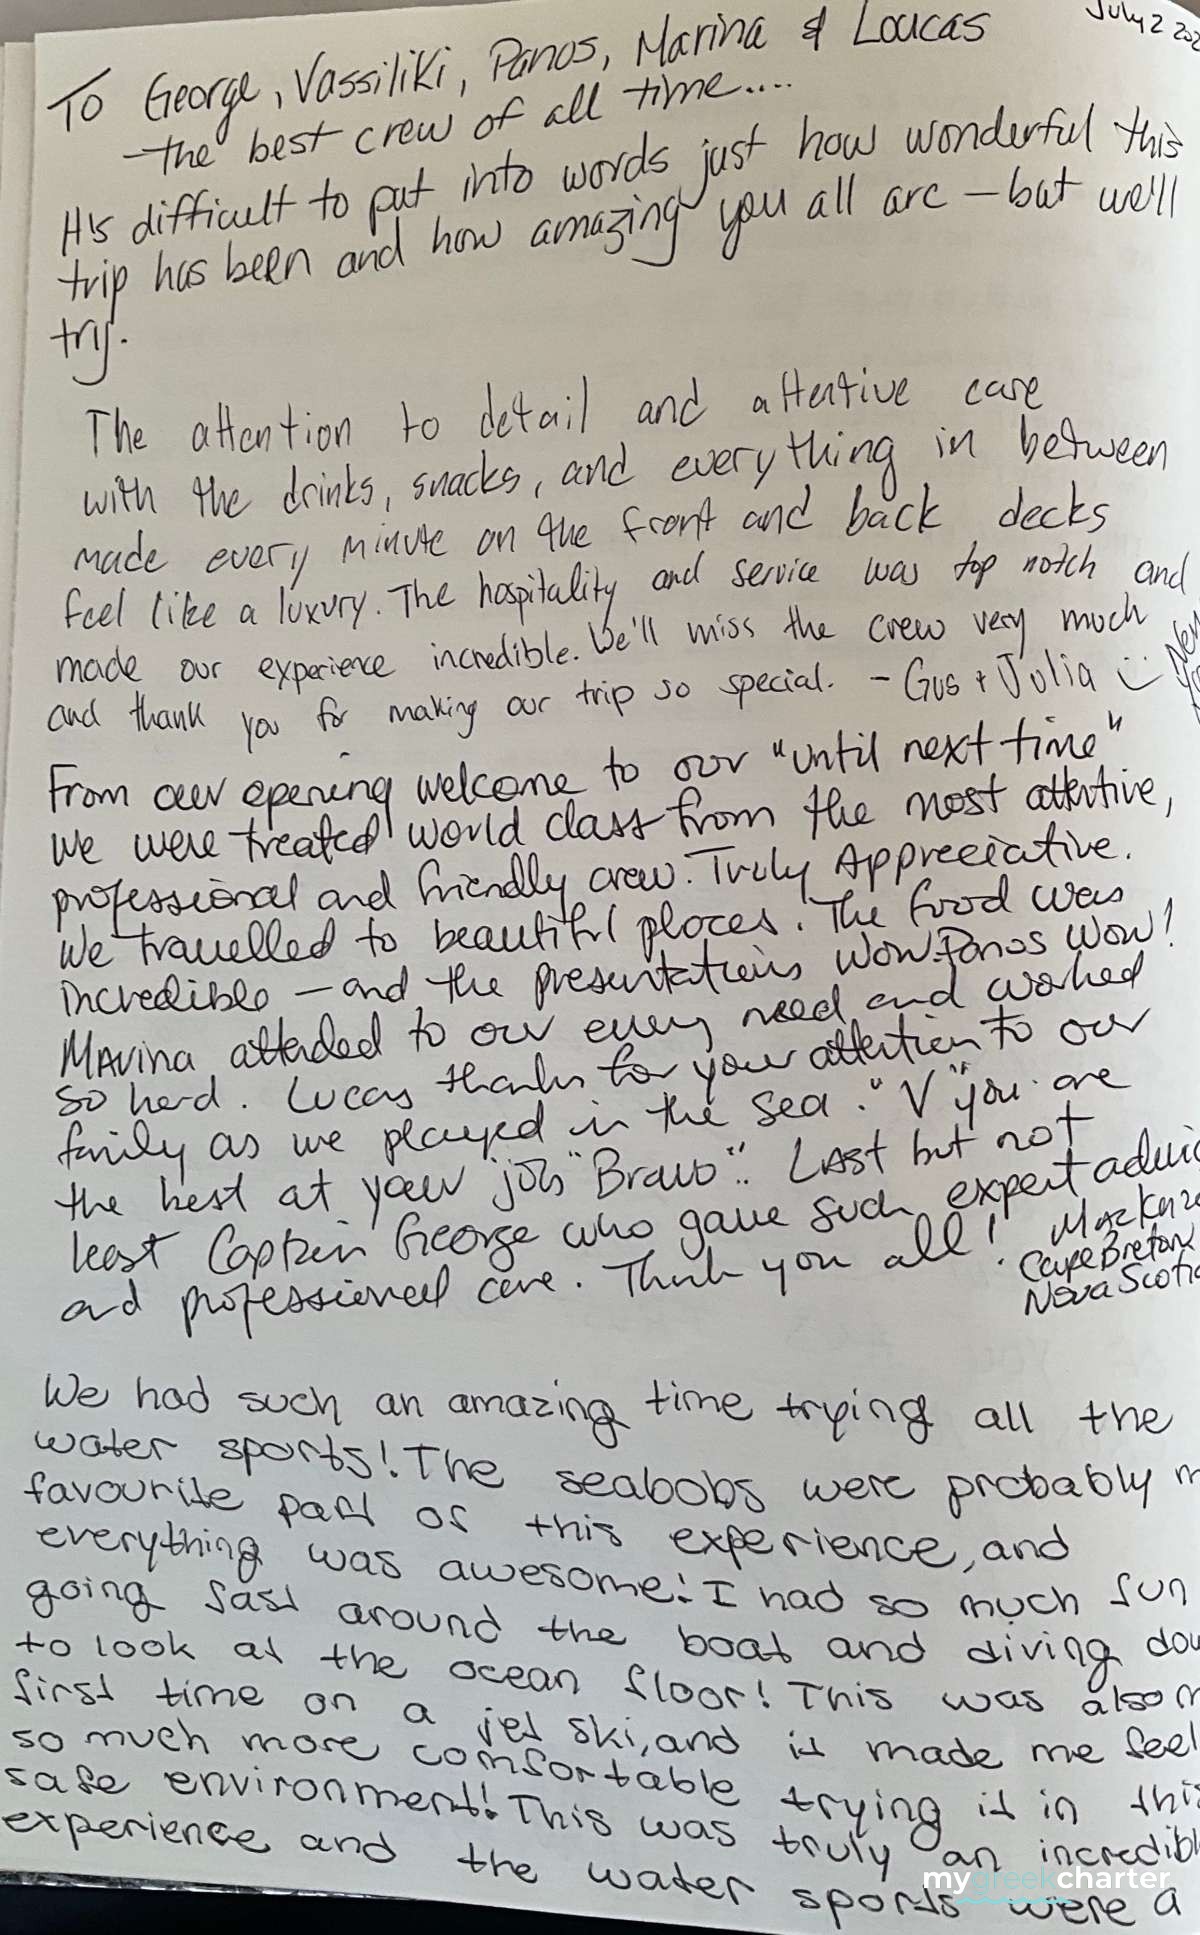 July 2 202
To George, Vassiliki, Panos, Marina & Loucas
- the best crew of all time....
It's difficult to put into words just how wonderful this
trip has been and how amazing you all are - but we'll
try.
The attention to detail and attentive care
with the drinks, snacks, and everything in between
made every minute on the front and back decks
feel like a luxury. The hospitality and service was top notch and
made our experience incredible. We'll miss the crew very much
and thank you for making our trip so special. - Gus + Julia
New
From our opening welcome to our "until next time"
we were treated world class from the most attentive,
professional and friendly crew. Truly Appreciative.
We travelled to beautiful places. The food was
incredible - and the presentations Wow. Panos Wow!
Marina attended to our every need and worked
so hard. Lucas thanks for your attention to our
family as we played in the sea. "V" you are
the best at your job "Bravo". Last but not
least Captain George who gave such expert advic
and professional care. Thank you all!
Cape Breton
Nova Scotia
We had such an amazing time trying all the
water sports! The seabobs were probably m
favourite part of this experience, and
everything was awesome! I had so much fun
going fast around the boat and diving dow
to look at the ocean floor! This was also m
first time on a jet ski, and it made me feel
so much more comfortable trying it in this
safe environment! This was truly an incredibl
experience and the water sports were a
mygreekcharter